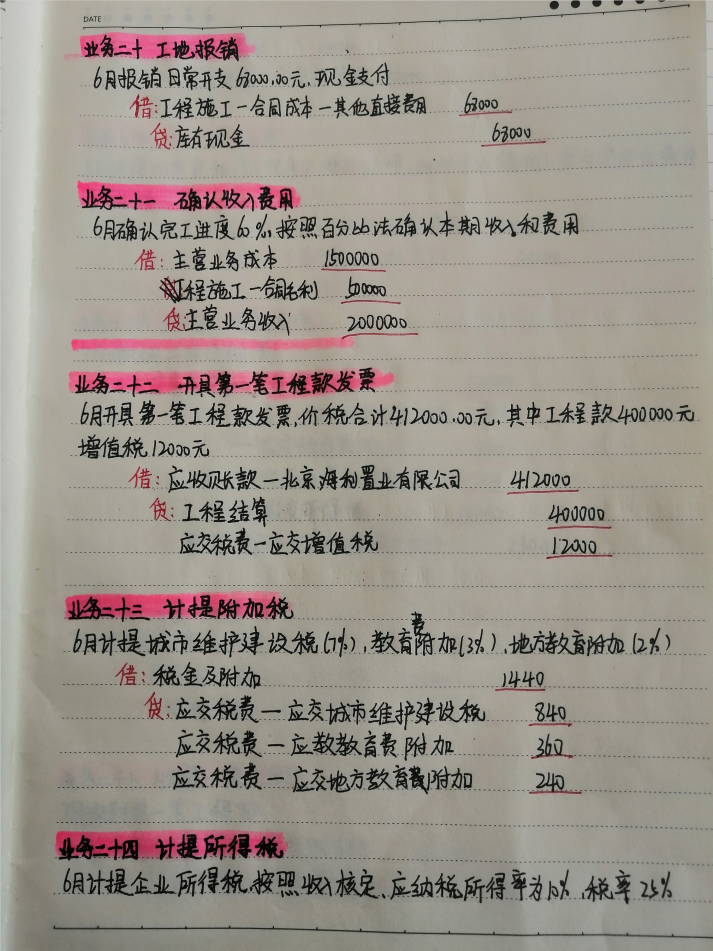 DATE
业务二十 工地报销
6月报销日常开支63000.00元,现金支付
借:工程施工—合同成本—其他直接费用 63000
贷:库存现金 63000
业务二十一 确认收入费用
6月确认完工进度60%,按照百分比法确认本期收入和费用
借:主营业务成本 1500000
工程施工—合同毛利 500000
贷:主营业务收入 2000000
业务二十二 开具第一笔工程款发票
6月开具第一笔工程款发票,价税合计412000.00元,其中工程款400000元
增值税12000元
借:应收账款—北京海利置业有限公司 412000
贷:工程结算 400000
应交税费—应交增值税 12000
业务二十三 计提附加税
6月计提城市维护建设税(7%),教育费附加(3%),地方教育附加(2%)
借:税金及附加 1440
贷:应交税费—应交城市维护建设税 840
应交税费—应教教育费附加 360
应交税费—应交地方教育费附加 240
业务二十四 计提所得税
6月计提企业所得税,按照收入核定、应纳税所得率为10%,税率25%